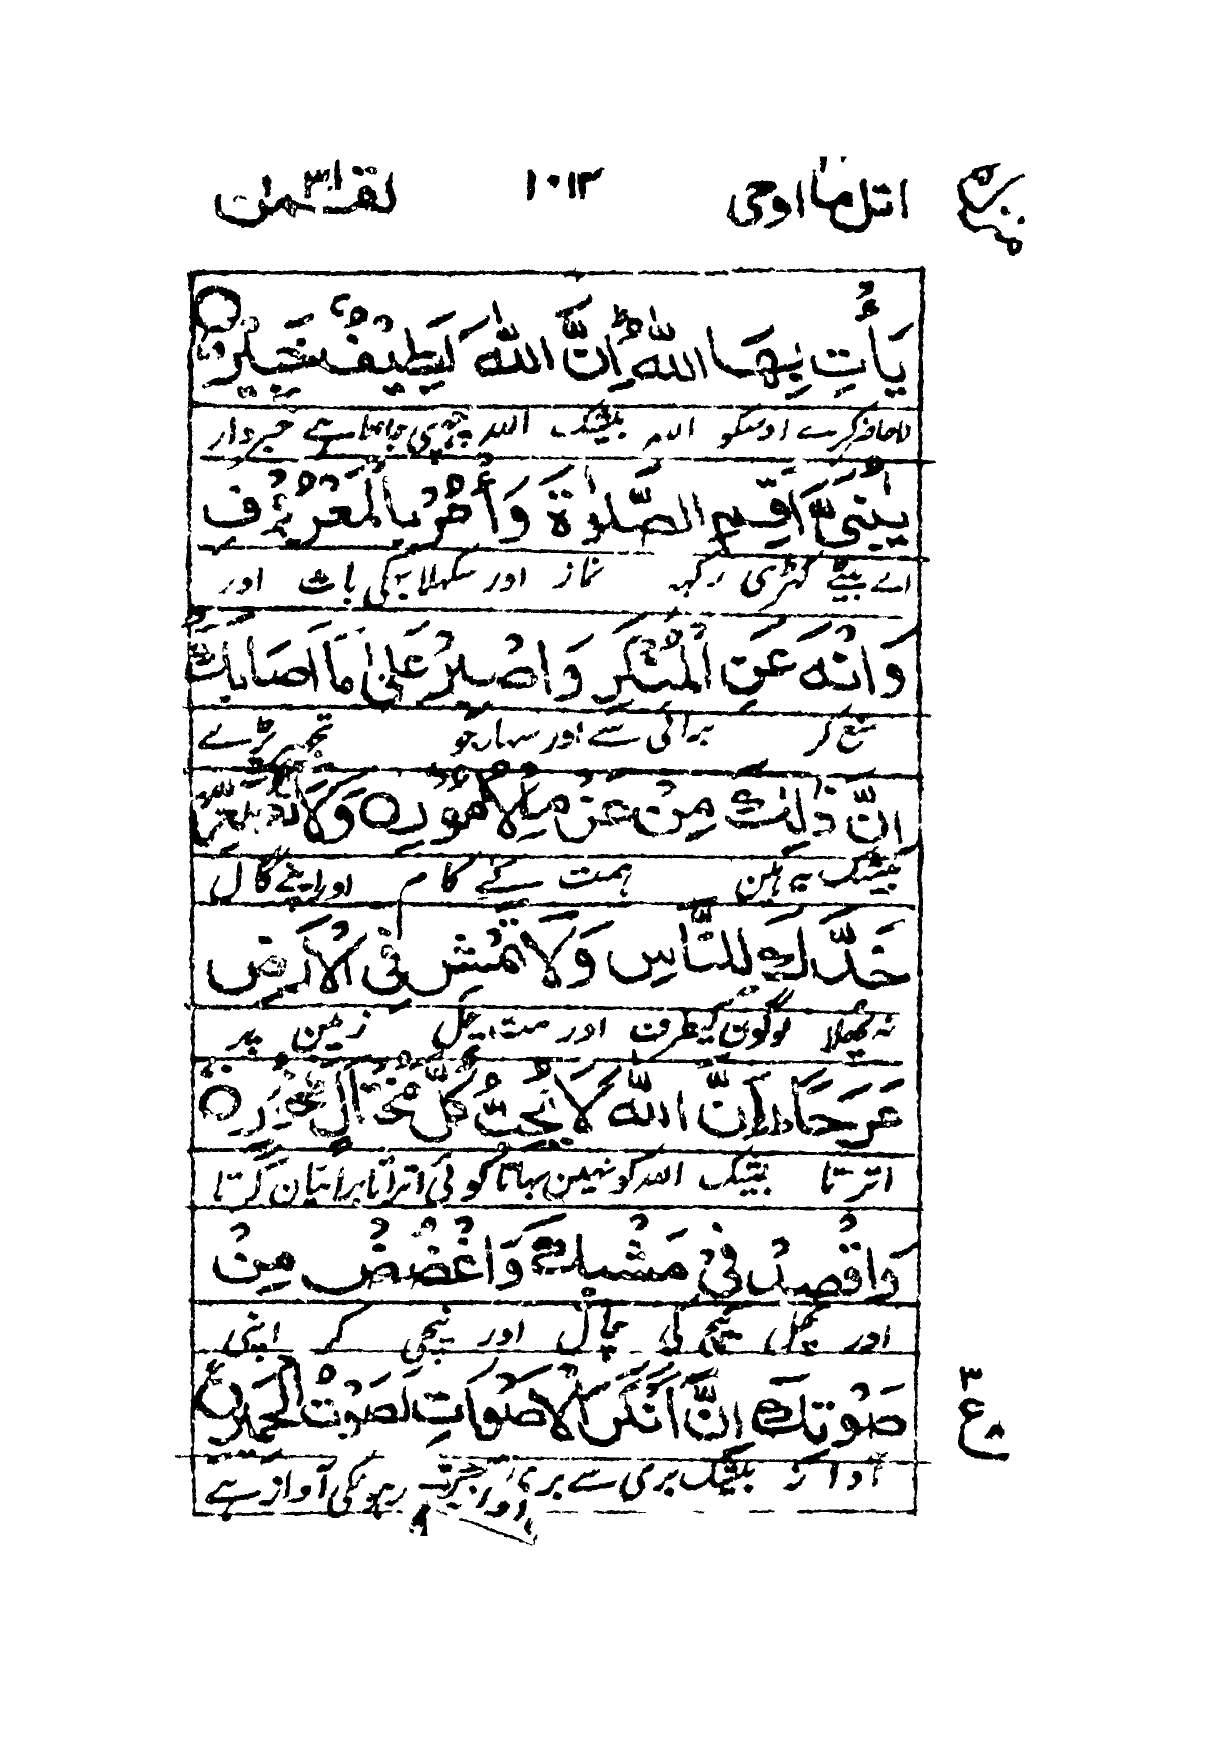 اتل ما اوحی ۱۰۱۳ لقمٰن ۳۱
يَأْتِ بِهَا اللهُ ؕ اِنَّ اللهَ لَطِيْفٌ خَبِيْرٌ ○
لاحاضر کرے اوسکو اللہ بیشک اللہ چھپی جانتا ہے خبردار
يٰبُنَيَّ اَقِمِ الصَّلٰوةَ وَأْمُرْ بِالْمَعْرُوْفِ
اے بیٹے کھڑی رکھہ نماز اور سکھلا بھلی بات اور
وَانْهَ عَنِ الْمُنْكَرِ وَاصْبِرْ عَلٰى مَا اَصَابَكَ
منع کر برائی سے اور سہار جو تجھپر پڑے
اِنَّ ذٰلِكَ مِنْ عَزْمِ الْاُمُوْرِ ○ وَلَا تُصَعِّرْ
بیشک یہ ہین ہمت کے کام اور اپنے گال
خَدَّكَ لِلنَّاسِ وَلَا تَمْشِ فِى الْاَرْضِ
نہ پھلا لوگون کیطرف اور مت چل زمین پر
مَرَحًا اِنَّ اللهَ لَا يُحِبُّ كُلَّ مُخْتَالٍ فَخُوْرٍ ○
اترتا بیشک اللہ کو نہین بہاتا کوئی اتراتا برائیان کرتا
وَاقْصِدْ فِيْ مَشْيِكَ وَاغْضُضْ مِنْ
اور چل بیچ کی چال اور نیچی کر اپنی
صَوْتِكَ اِنَّ اَنْكَرَ الْاَصْوَاتِ لَصَوْتُ الْحَمِيْرِ
آواز بیشک بری سے بری آواز گدہونکی آواز ہے
۳
ع
۸